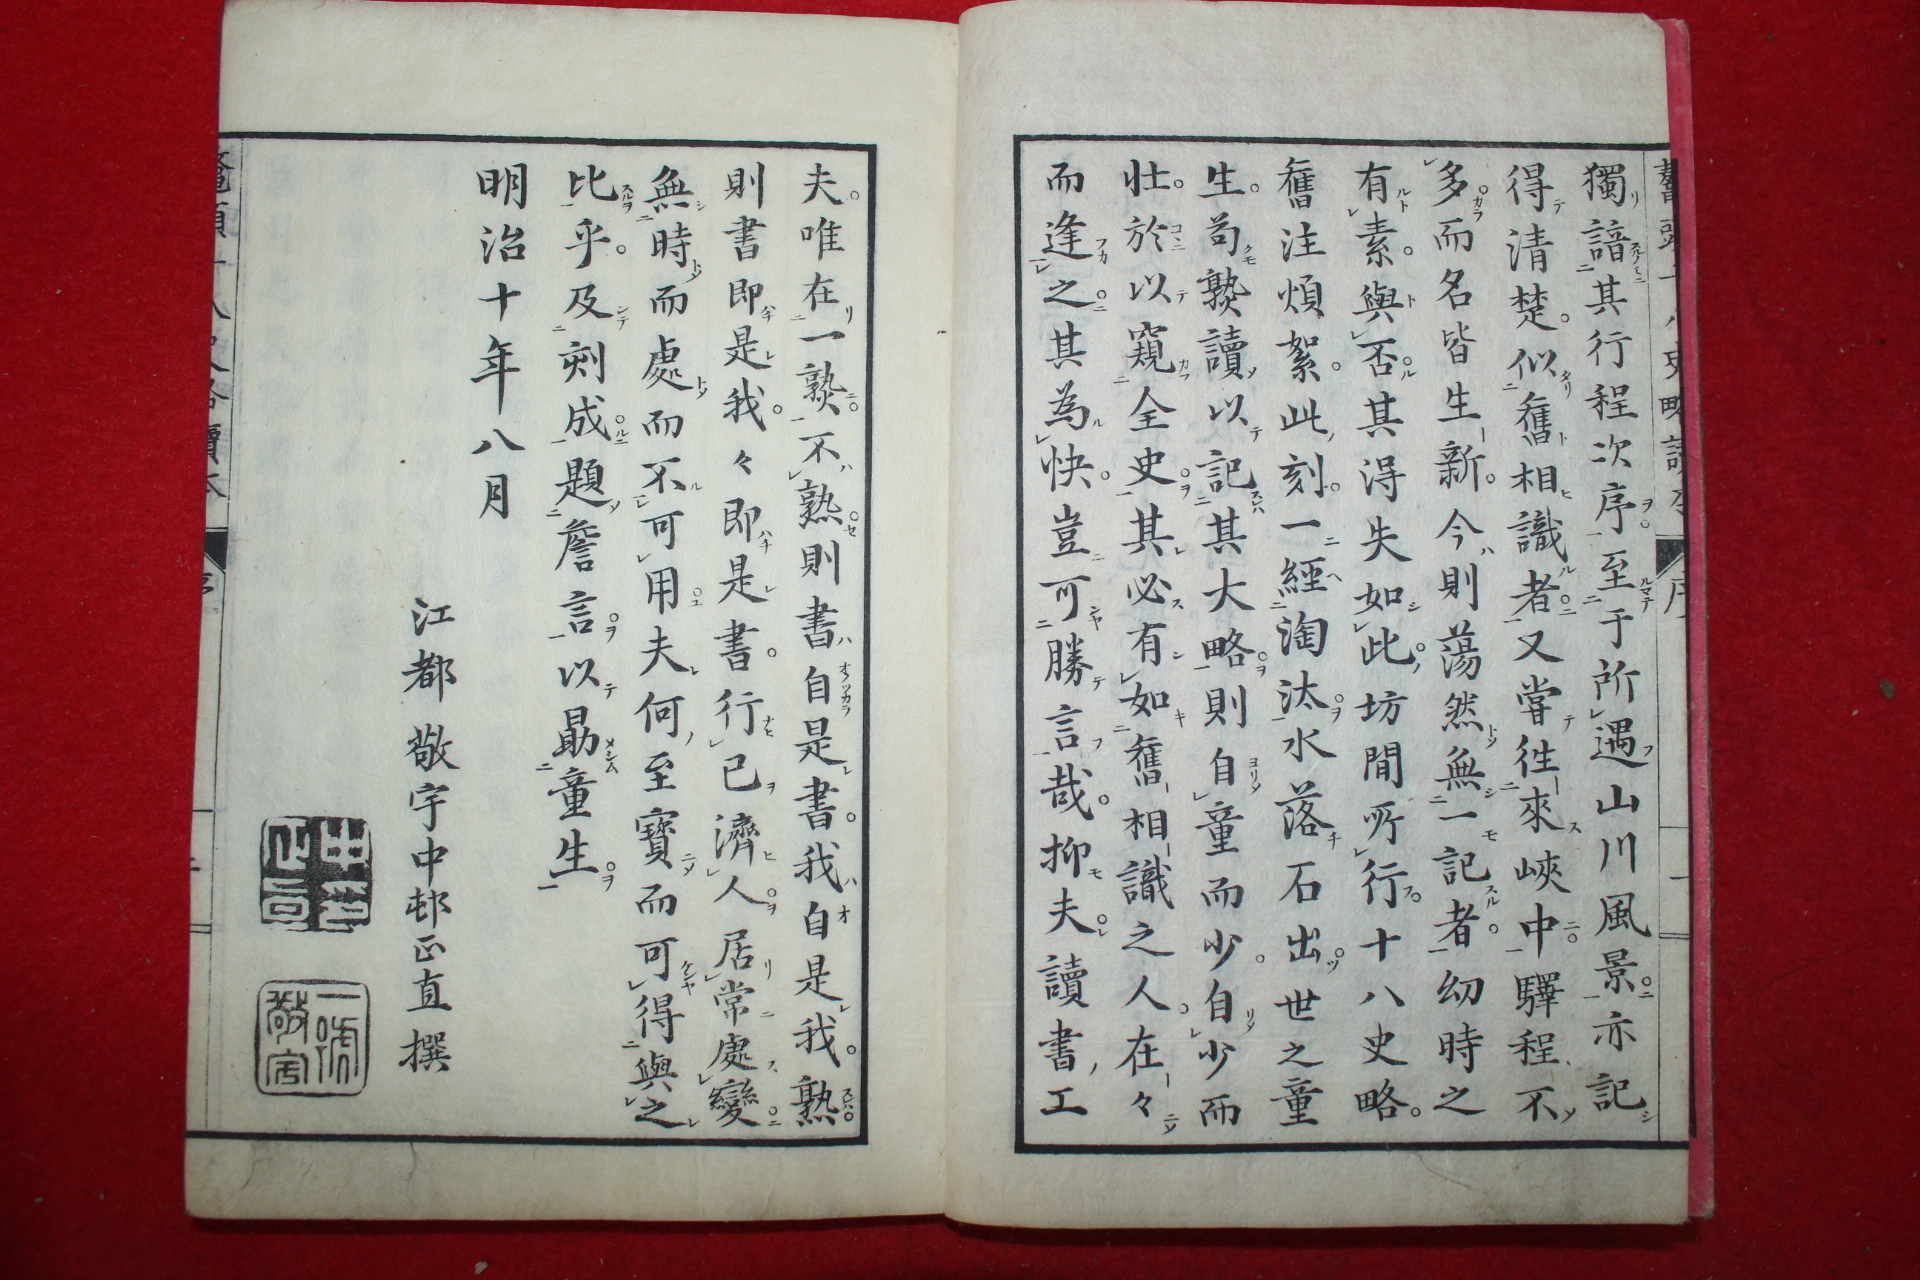 獨諳其行程次序至于所遇山川風景亦記
得清楚似舊相識者又嘗徃來峽中驛程不
多而名皆生新今則蕩然無一記者幼時之
有素與否其得失如此坊間所行十八史略
舊注煩絮此刻一經淘汰水落石出世之童
生苟熟讀以記其大略則自童而少自少而
壮於以窺全史其必有如舊相識之人在々
而逢之其為快豈可勝言哉抑夫讀書工
夫唯在一熟不熟則書自是書我自是我熟
則書即是我々即是書行己濟人居常處變
無時而處而不可用夫何至寶而可得與之
比乎及剞成題詹言以勗童生
明治十年八月
江都 敬宇中邨正直撰
一號敬宇